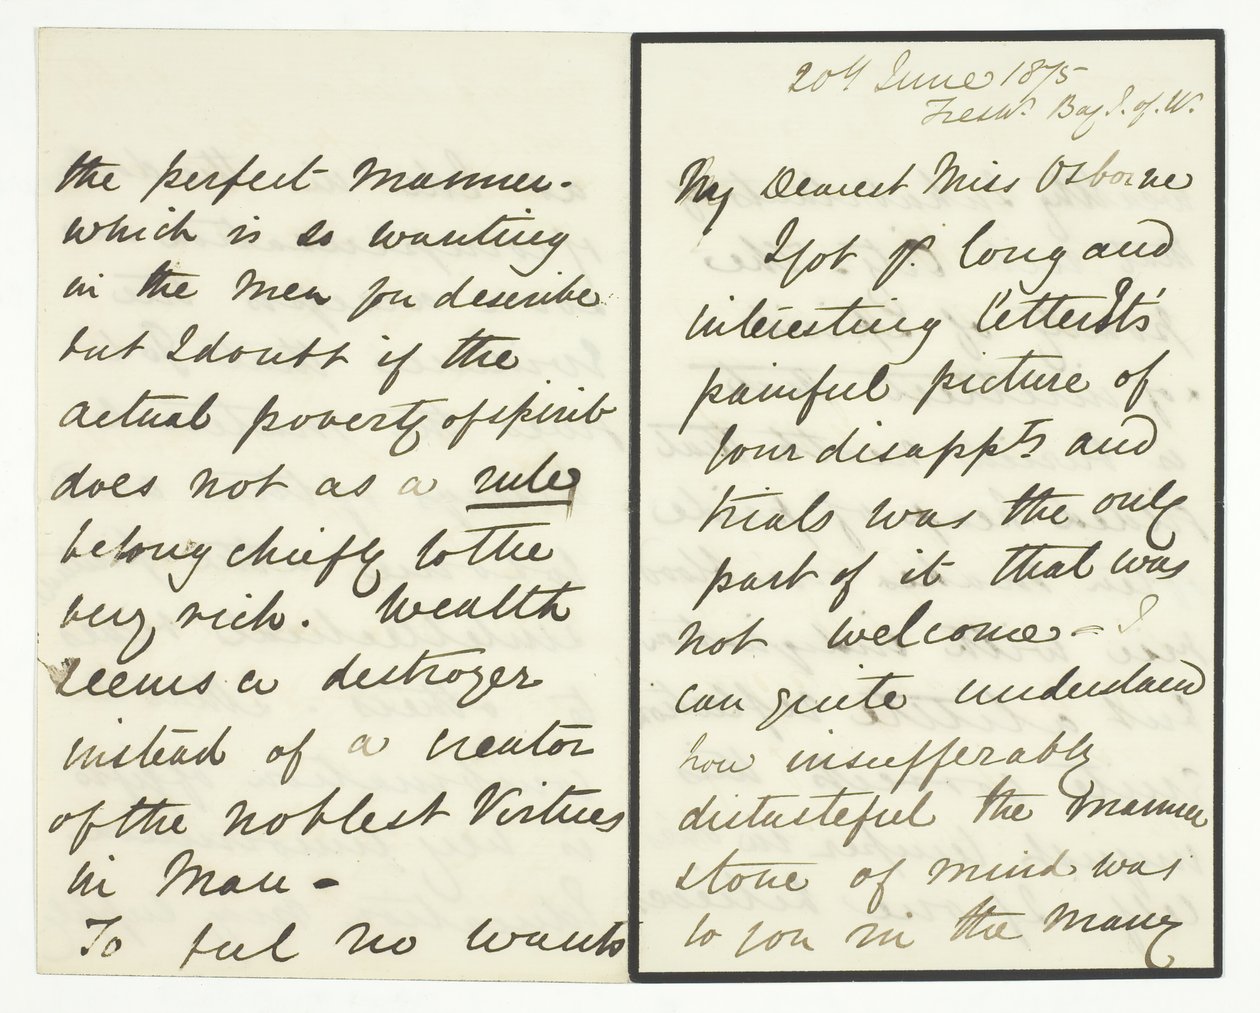 20th June 1875
Freshr. Bay I. of. W.
My Dearest Miss Osborne
I got yr. long and
interesting letter Its'
painful picture of
your disappts and
trials was the only
part of it that was
not welcome - I
can quite understand
how insufferably
distasteful the manner
& tone of mind was
to you in the many
the perfect manner.
which is so wanting
in the men you describe
but I doubt if the
actual poverty of spirit
does not as a rule
belong chiefly to the
very rich. Wealth
seems a destroyer
instead of a creator
of the noblest Virtues
in Man -
To feel no wants